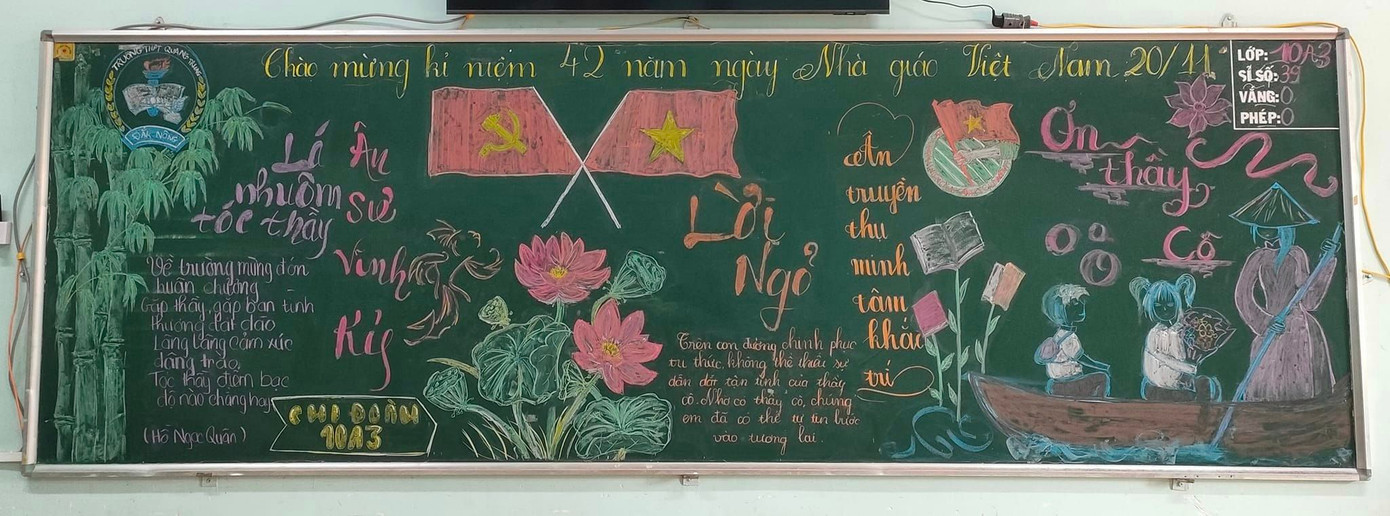 Chào mừng kỉ niệm 42 năm ngày Nhà giáo Việt Nam 20/11
LỚP: 10A3
SĨ SỐ: 39
VẮNG: 0
PHÉP: 0
TRƯỜNG THPT QUANG TRUNG
ĐẮK NÔNG
Lá
nhuộm
tóc thầy
Về trường mừng đón
huân chương
Gặp thầy, gặp bạn tình
thương dạt dào
Lâng lâng cảm xúc
dâng trào
Tóc thầy điểm bạc
độ nào chẳng hay
(Hồ Ngọc Quân)
Ân
Sư
Vĩnh
Ký
CHI ĐOÀN
10A3
Lời
Ngỏ
Trên con đường chinh phục
tri thức, không thể thiếu sự
dẫn dắt tận tình của thầy
cô. Nhờ có thầy cô, chúng
em đã có thể tự tin bước
vào tương lai.
Ân
truyền
thụ
minh
tâm
khắc
trí
Ơn
thầy
Cô